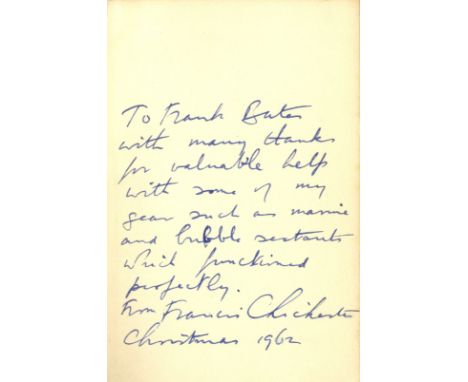 To Frank Bates
with many thanks
for valuable help
with some of my
gear such as marine
and bubble sextants
which functioned
perfectly.
from Francis Chichester
Christmas 1962